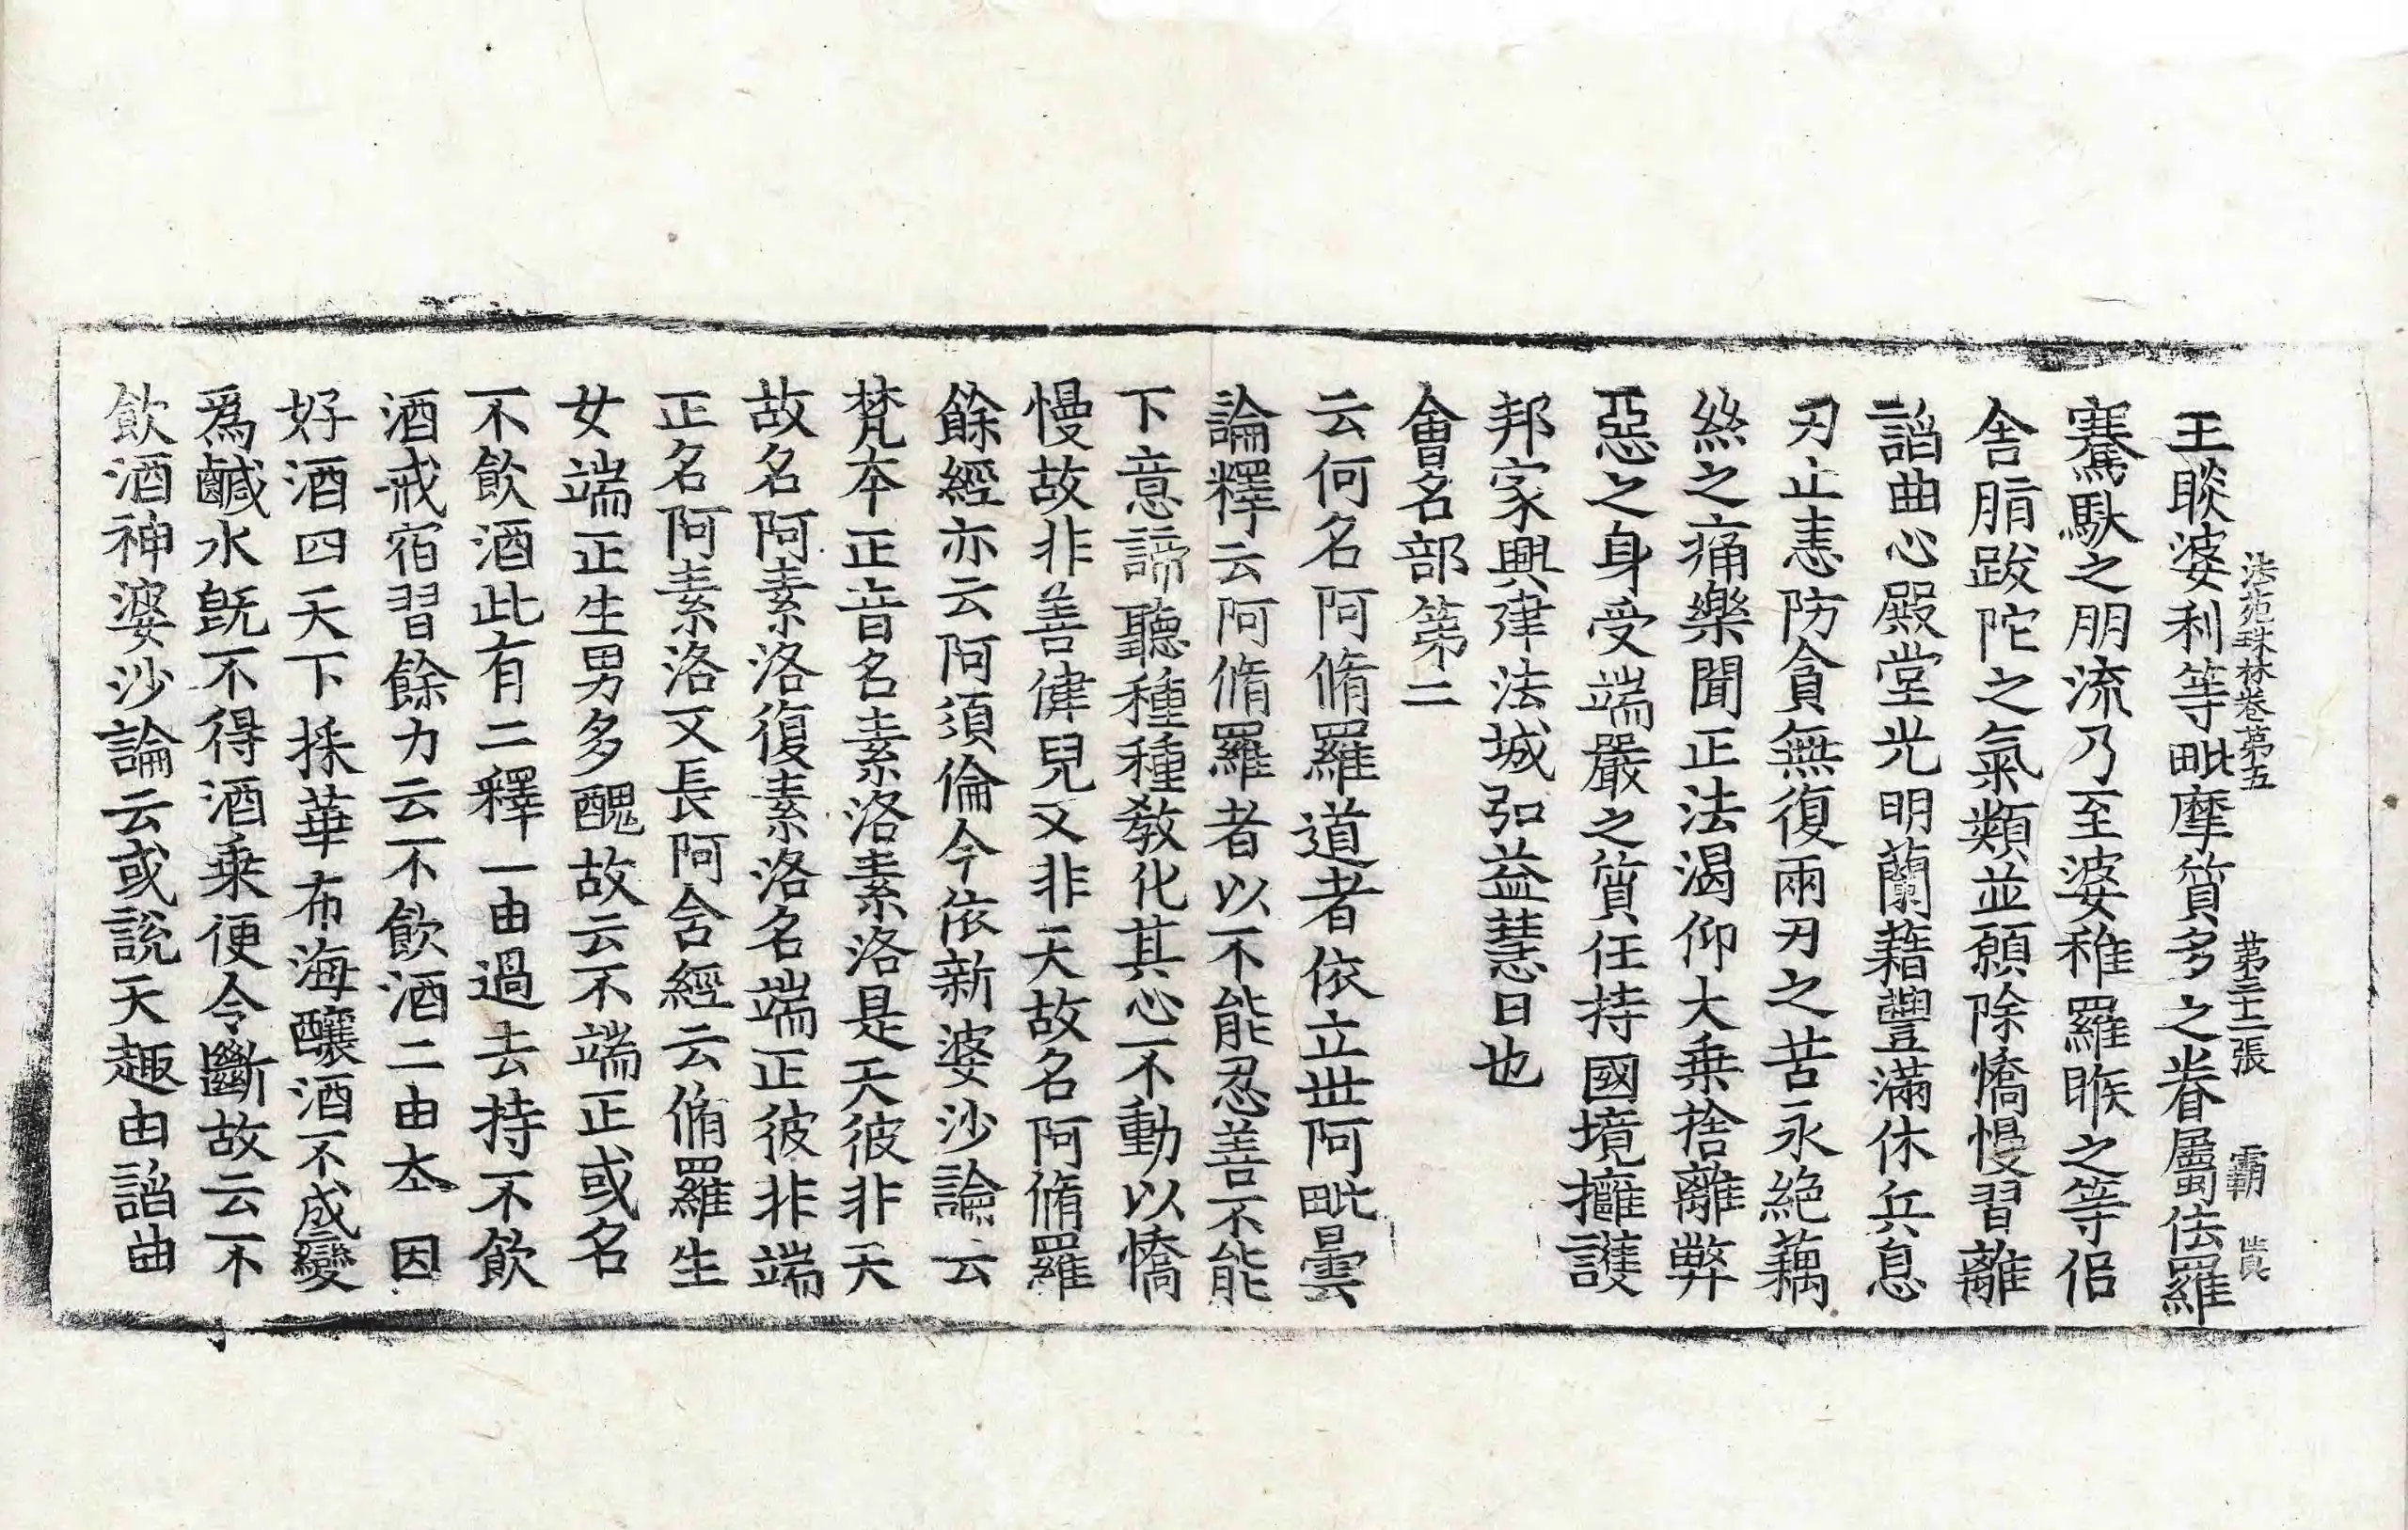 法苑珠林卷第五 第三十二張 霸
王睒婆利等毗摩質多之眷屬佉羅
騫馱之朋流乃至婆稚羅睺之等侶
舍脂跋陀之氣類並願除憍慢習離
諂曲心殿堂光明蘭藉豐滿休兵息
刃止恚防貪無復兩刃之苦永絶藕
絲之痛樂聞正法渴仰大乗捨離弊
惡之身受端嚴之質任持國境擁護
邦家興建法城弘益慧日也
會名部第二
云何名阿脩羅道者依立世阿毗曇
論釋云阿脩羅者以不能忍善不能
下意諦聽種種教化其心不動以憍
慢故非善健兒又非天故名阿脩羅
餘經亦云阿須倫今依新婆沙論云
梵本正音名素洛素洛是天彼非天
故名阿素洛復素洛名端正彼非端
正名阿素洛又長阿含經云脩羅生
女端正生男多醜故云不端正或名
不飲酒此有二釋一由過去持不飲
酒戒宿習餘力云不飲酒二由夲因
好酒四天下採華布海釀酒不成變
爲鹹水旣不得酒乗便令斷故云不
飲酒神婆沙論云或說天趣由諂曲